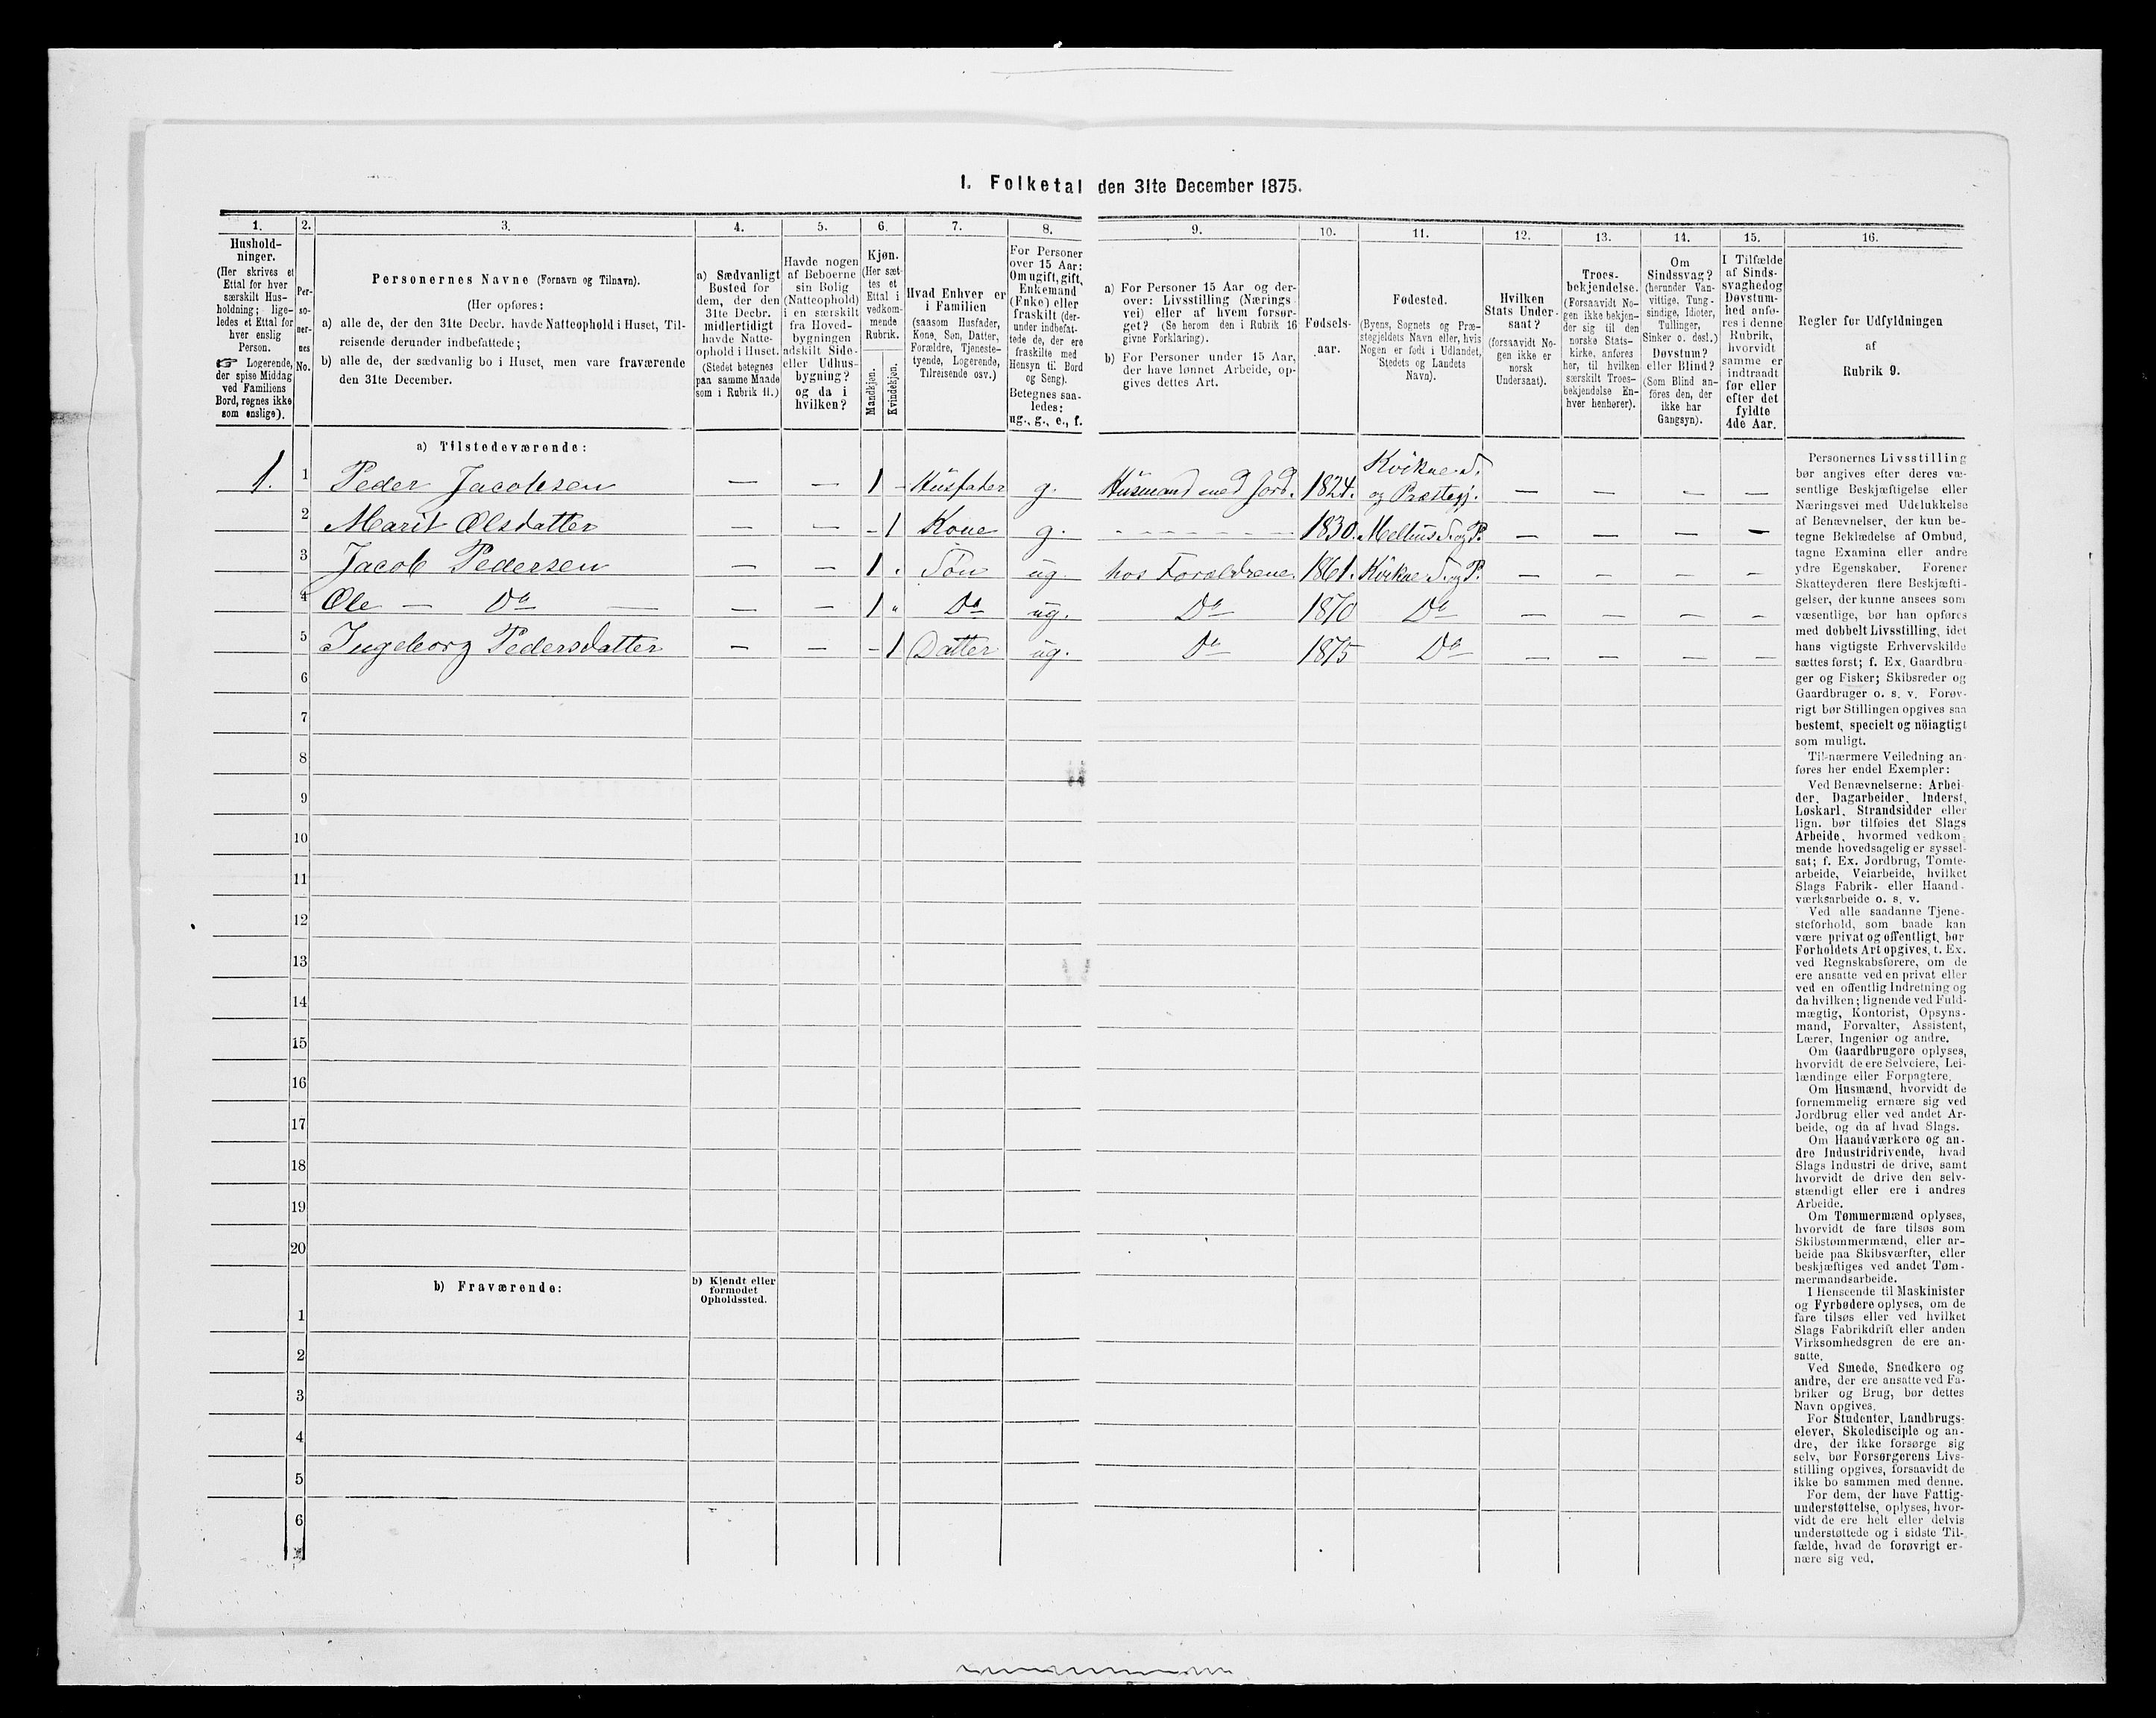 1. Folketal den 31te December 1875.
1. 2. 3. 4. 5. 6. 7. 8. 9. 10. 11. 12. 13. 14. 15. 16.
Hushold-
ninger.
(Her skrives et
Ettal for hver
særskilt Hus-
holdning; lige-
ledes et Ettal for
hver enslig
Person.
☞ Logerende,
der spise Middag
ved Familiens
Bord, regnes ikke
som enslige).
Per-
so-
ner-
nes
No.
Personernes Navne (Fornavn og Tilnavn).
(Her opføres:
a) alle de, der den 31te Decbr. havde Natteophold i Huset, Til-
reisende derunder indbefattede;
b) alle de, der sædvanlig bo i Huset, men vare fraværende
den 31te December.
a) Sædvanligt
Bosted for
dem, der den
31te Decbr.
midlertidigt
havde Natte-
ophold i Huset.
(Stedet betegnes
paa samme Maade
som i Rubrik 11.)
Havde nogen
af Beboerne
sin Bolig
(Natteophold)
i en særskilt
fra Hoved-
bygningen
adskilt Side-
eller Udhus-
bygning?
og da i
hvilken?
Kjøn.
(Her sæt-
tes et
Ettal i
vedkom-
mende
Rubrik.
Mandkjøn.
Kvindekjøn.
Hvad Enhver er
i Familien
(saasom Husfader,
Kone, Søn, Datter,
Forældre, Tjeneste-
tyende, Logerende,
Tilreisende osv.)
For Personer
over 15 Aar:
Om ugift, gift,
Enkemand
(Enke) eller
fraskilt (der-
under indbefat-
tede de, der ere
fraskilte med
Hensyn til Bord
og Seng).
Betegnes saa-
ledes:
ug., g., e., f.
a) For Personer 15 Aar og der-
over: Livsstilling (Nærings-
vei) eller af hvem forsør-
get? (Se herom den i Rubrik 16
givne Forklaring).
b) For Personer under 15 Aar,
der have lønnet Arbeide, op-
gives dettes Art.
Fødsels-
aar.
Fødested.
(Byens, Sognets og Præ-
stegjeldets Navn eller, hvis
Nogen er født i Udlandet,
Stedets og Landets
Navn).
Hvilken
Stats Under-
saat?
(forsaavidt No-
gen ikke er
norsk
Undersaat).
Troes-
bekjendelse.
(Forsaavidt No-
gen ikke bekjen-
der sig til den
norske Stats-
kirke, anføres
her, til hvilken
særskilt Troes-
bekjendelse En-
hver henhører).
Om
Sindssvag?
(herunder Van-
vittige, Tung-
sindige, Idioter,
Tullinger,
Sinker o. desl.)
Døvstum?
eller Blind?
(Som Blind an-
føres den, der
ikke har
Gangsyn).
I Tilfælde
af Sinds-
svaghed og
Døvstum-
hed anfø-
res i denne
Rubrik,
hvorvidt
samme er
indtraadt
før eller
efter det
fyldte
4de Aar.
Regler for Udfyldningen
af
Rubrik 9.
a) Tilstedeværende:
1. 1 Peder Jacobsen — — 1 - Husfader g. Husmand med Jord. 1824. Kvikne S.
og Præstegj. — — — —
2 Marit Olsdatter — — - 1 Kone g. - - - - - - 1830. Melhus S. og P. — — — —
3 Jacob Pedersen — — 1 . Søn ug. hos Forældrene. 1861. Kvikne S. og P. — — — —
4 Ole — Do — — — 1 " Do ug. Do 1870 Do — — — —
5 Ingeborg Pedersdatter — — - 1 Datter ug. Do 1875 Do — — — —
6
7
8
9
10
11
12
13
14
15
16
17
18
19
20
b) Fraværende:
b) Kjendt eller
formodet
Opholdssted.
1
2
3
4
5
6
Personernes Livsstilling
bør angives efter deres væ-
sentlige Beskjæftigelse eller
Næringsvei med Udelukkelse
af Benævnelser, der kun be-
tegne Beklædelse af Ombud,
tagne Examina eller andre
ydre Egenskaber. Forener
Skatteyderen flere Beskjæfti-
gelser, der kunne ansees som
væsentlige, bør han opføres
med dobbelt Livsstilling, idet
hans vigtigste Erhvervskilde
sættes først; f. Ex. Gaardbru-
ger og Fisker; Skibsreder og
Gaardbruger o. s. v. Forøv-
rigt bør Stillingen opgives saa
bestemt, specielt og nöiagtigt
som muligt.
Til nærmere Veiledning an-
føres her endel Exempler:
Ved Benævnelserne: Arbei-
der, Dagarbeider, Inderst,
Løskarl, Strandsidder eller
lign. bør tilføies det Slags
Arbeide, hvormed vedkom-
mende hovedsagelig er syssel-
sat; f. Ex. Jordbrug, Tomte-
arbeide, Veiarbeide, hvilket
Slags Fabrik- eller Haand-
værksarbeide o. s. v.
Ved alle saadanne Tjene-
steforhold, som baade kan
være privat og offentligt, bør
Forholdets Art opgives, t. Ex.
ved Regnskabsførere, om de
ere ansatte ved en privat eller
ved en offentlig Indretning og
da hvilken; lignende ved Fuld-
mægtig, Kontorist, Opsyns-
mand, Forvalter, Assistent,
Lærer, Ingeniør og andre.
Om Gaardbrugere oplyses,
hvorvidt de ere Selveiere, Lei-
lændinge eller Forpagtere.
Om Husmænd, hvorvidt de
fornemmelig ernære sig ved
Jordbrug eller ved andet Ar-
beide, og da af hvad Slags.
Om Haandværkere og an-
dre Industridrivende, hvad
Slags Industri de drive, samt
hvorvidt de drive den selv-
stændigt eller ere i andres
Arbeide.
Om Tømmermænd oplyses,
hvorvidt de fare tilsøs som
Skibstømmermænd, eller ar-
beide paa Skibsværfter, eller
beskjæftiges ved andet Tøm-
mermandsarbeide.
I Henseende til Maskinister
og Fyrbødere oplyses, om de
fare tilsøs eller ved hvilket
Slags Fabrikdrift eller anden
Virksomhedsgren de ere an-
satte.
Ved Smede, Snedkere og
andre, der ere ansatte ved Fa-
briker og Brug, bør dettes
Navn opgives.
For Studenter, Landbrugs-
elever, Skoledisciple og an-
dre, der ikke forsørge sig
selv, bør Forsørgerens Livs-
stilling opgives, forsaavidt de
ikke bo sammen med denne.
For dem, der have Fattig-
understøttelse, oplyses, hvor-
vidt de ere helt eller delvis
understøttede og i sidste Til-
fælde, hvad de forøvrigt er-
nære sig ved.